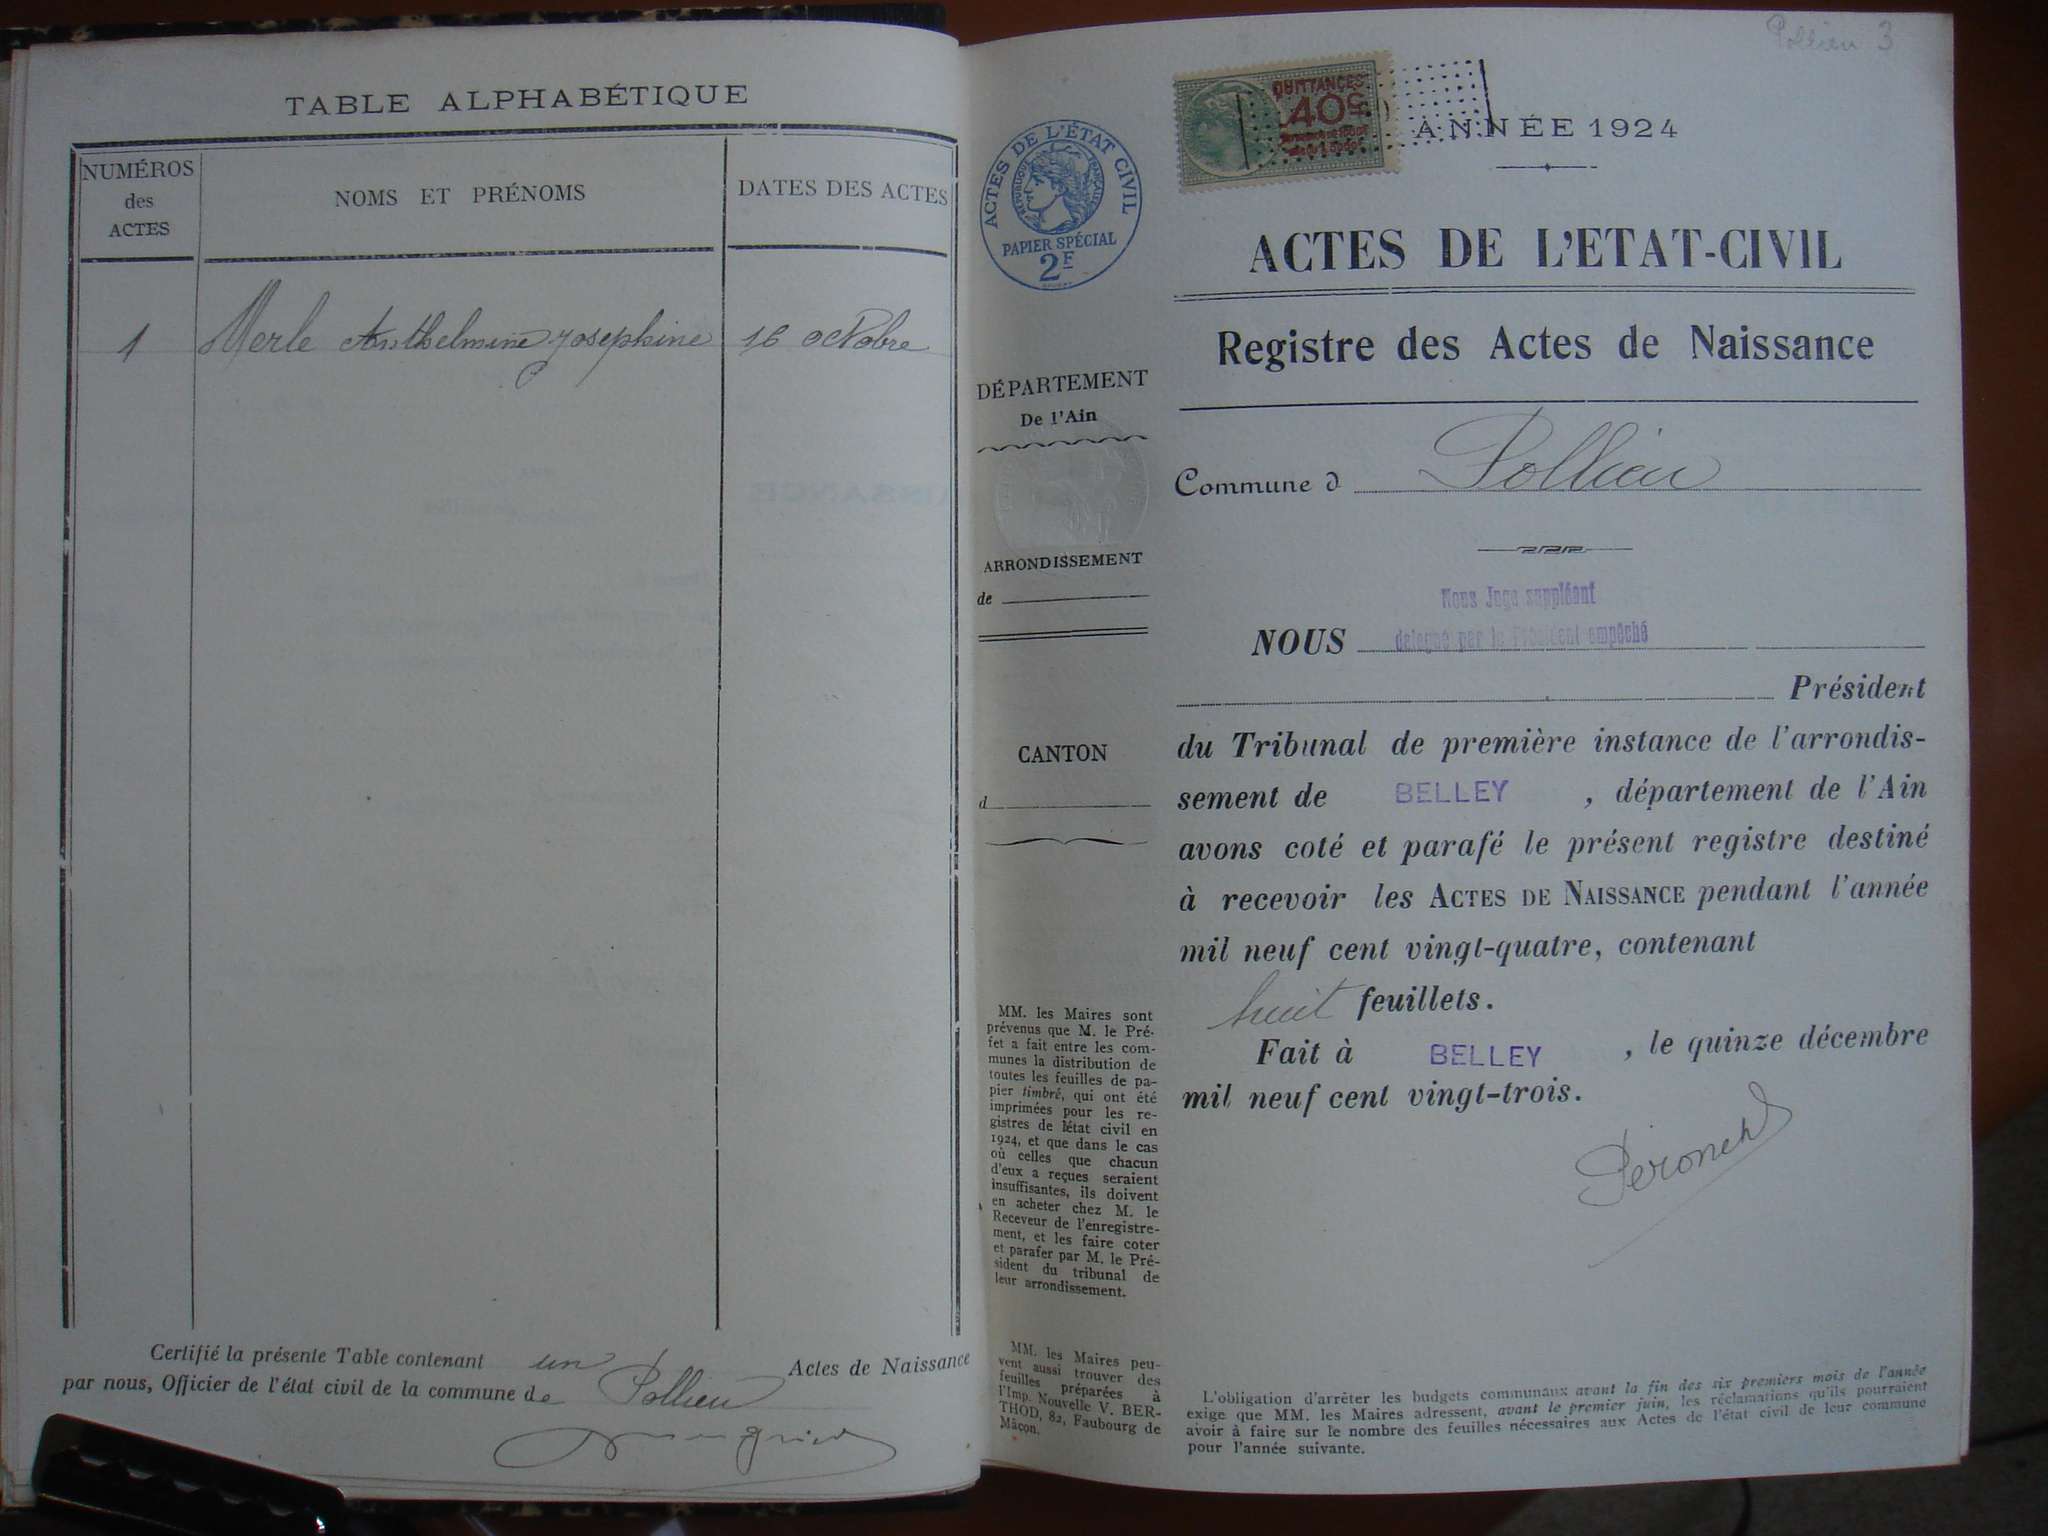 TABLE ALPHABÉTIQUE
NUMÉROS
des
ACTES
NOMS ET PRÉNOMS
DATES DES ACTES
1 Merle Anthelmine Josephine 16 octobre
Certifié la présente Table contenant un Actes de Naissance
par nous, Officier de l'état civil de la commune de Pollieu
Pollieu 3
QUITTANCES
40c
ANNÉE 1924
ACTES DE L'ÉTAT CIVIL
RÉPUBLIQUE FRANÇAISE
PAPIER SPÉCIAL
2F
ACTES DE L'ETAT-CIVIL
Registre des Actes de Naissance
DÉPARTEMENT
De l'Ain
Commune d Pollieu
ARRONDISSEMENT
de
Nous Juge suppléant
NOUS délégué par le Président empêché
Président
CANTON
d
du Tribunal de première instance de l'arrondis-
sement de BELLEY, département de l'Ain
avons coté et parafé le présent registre destiné
à recevoir les ACTES DE NAISSANCE pendant l'année
mil neuf cent vingt-quatre, contenant
huit feuillets.
Fait à BELLEY, le quinze décembre
mil neuf cent vingt-trois.
MM. les Maires sont
prévenus que M. le Pré-
fet a fait entre les com-
munes la distribution de
toutes les feuilles de pa-
pier timbré, qui ont été
imprimées pour les re-
gistres de l'état civil en
1924, et que dans le cas
où celles que chacun
d'eux a reçues seraient
insuffisantes, ils doivent
en acheter chez M. le
Receveur de l'enregistre-
ment, et les faire coter
et parafer par M. le Pré-
sident du tribunal de
leur arrondissement.
MM. les Maires peu-
vent aussi trouver des
feuilles préparées à
l'Imp. Nouvelle V. BER-
THOD, 82, Faubourg de
Mâcon.
L'obligation d'arrêter les budgets communaux avant la fin des six premiers mois de l'année
exige que MM. les Maires adressent, avant le premier juin, les réclamations qu'ils pourraient
avoir à faire sur le nombre des feuilles nécessaires aux Actes de l'état civil de leur commune
pour l'année suivante.